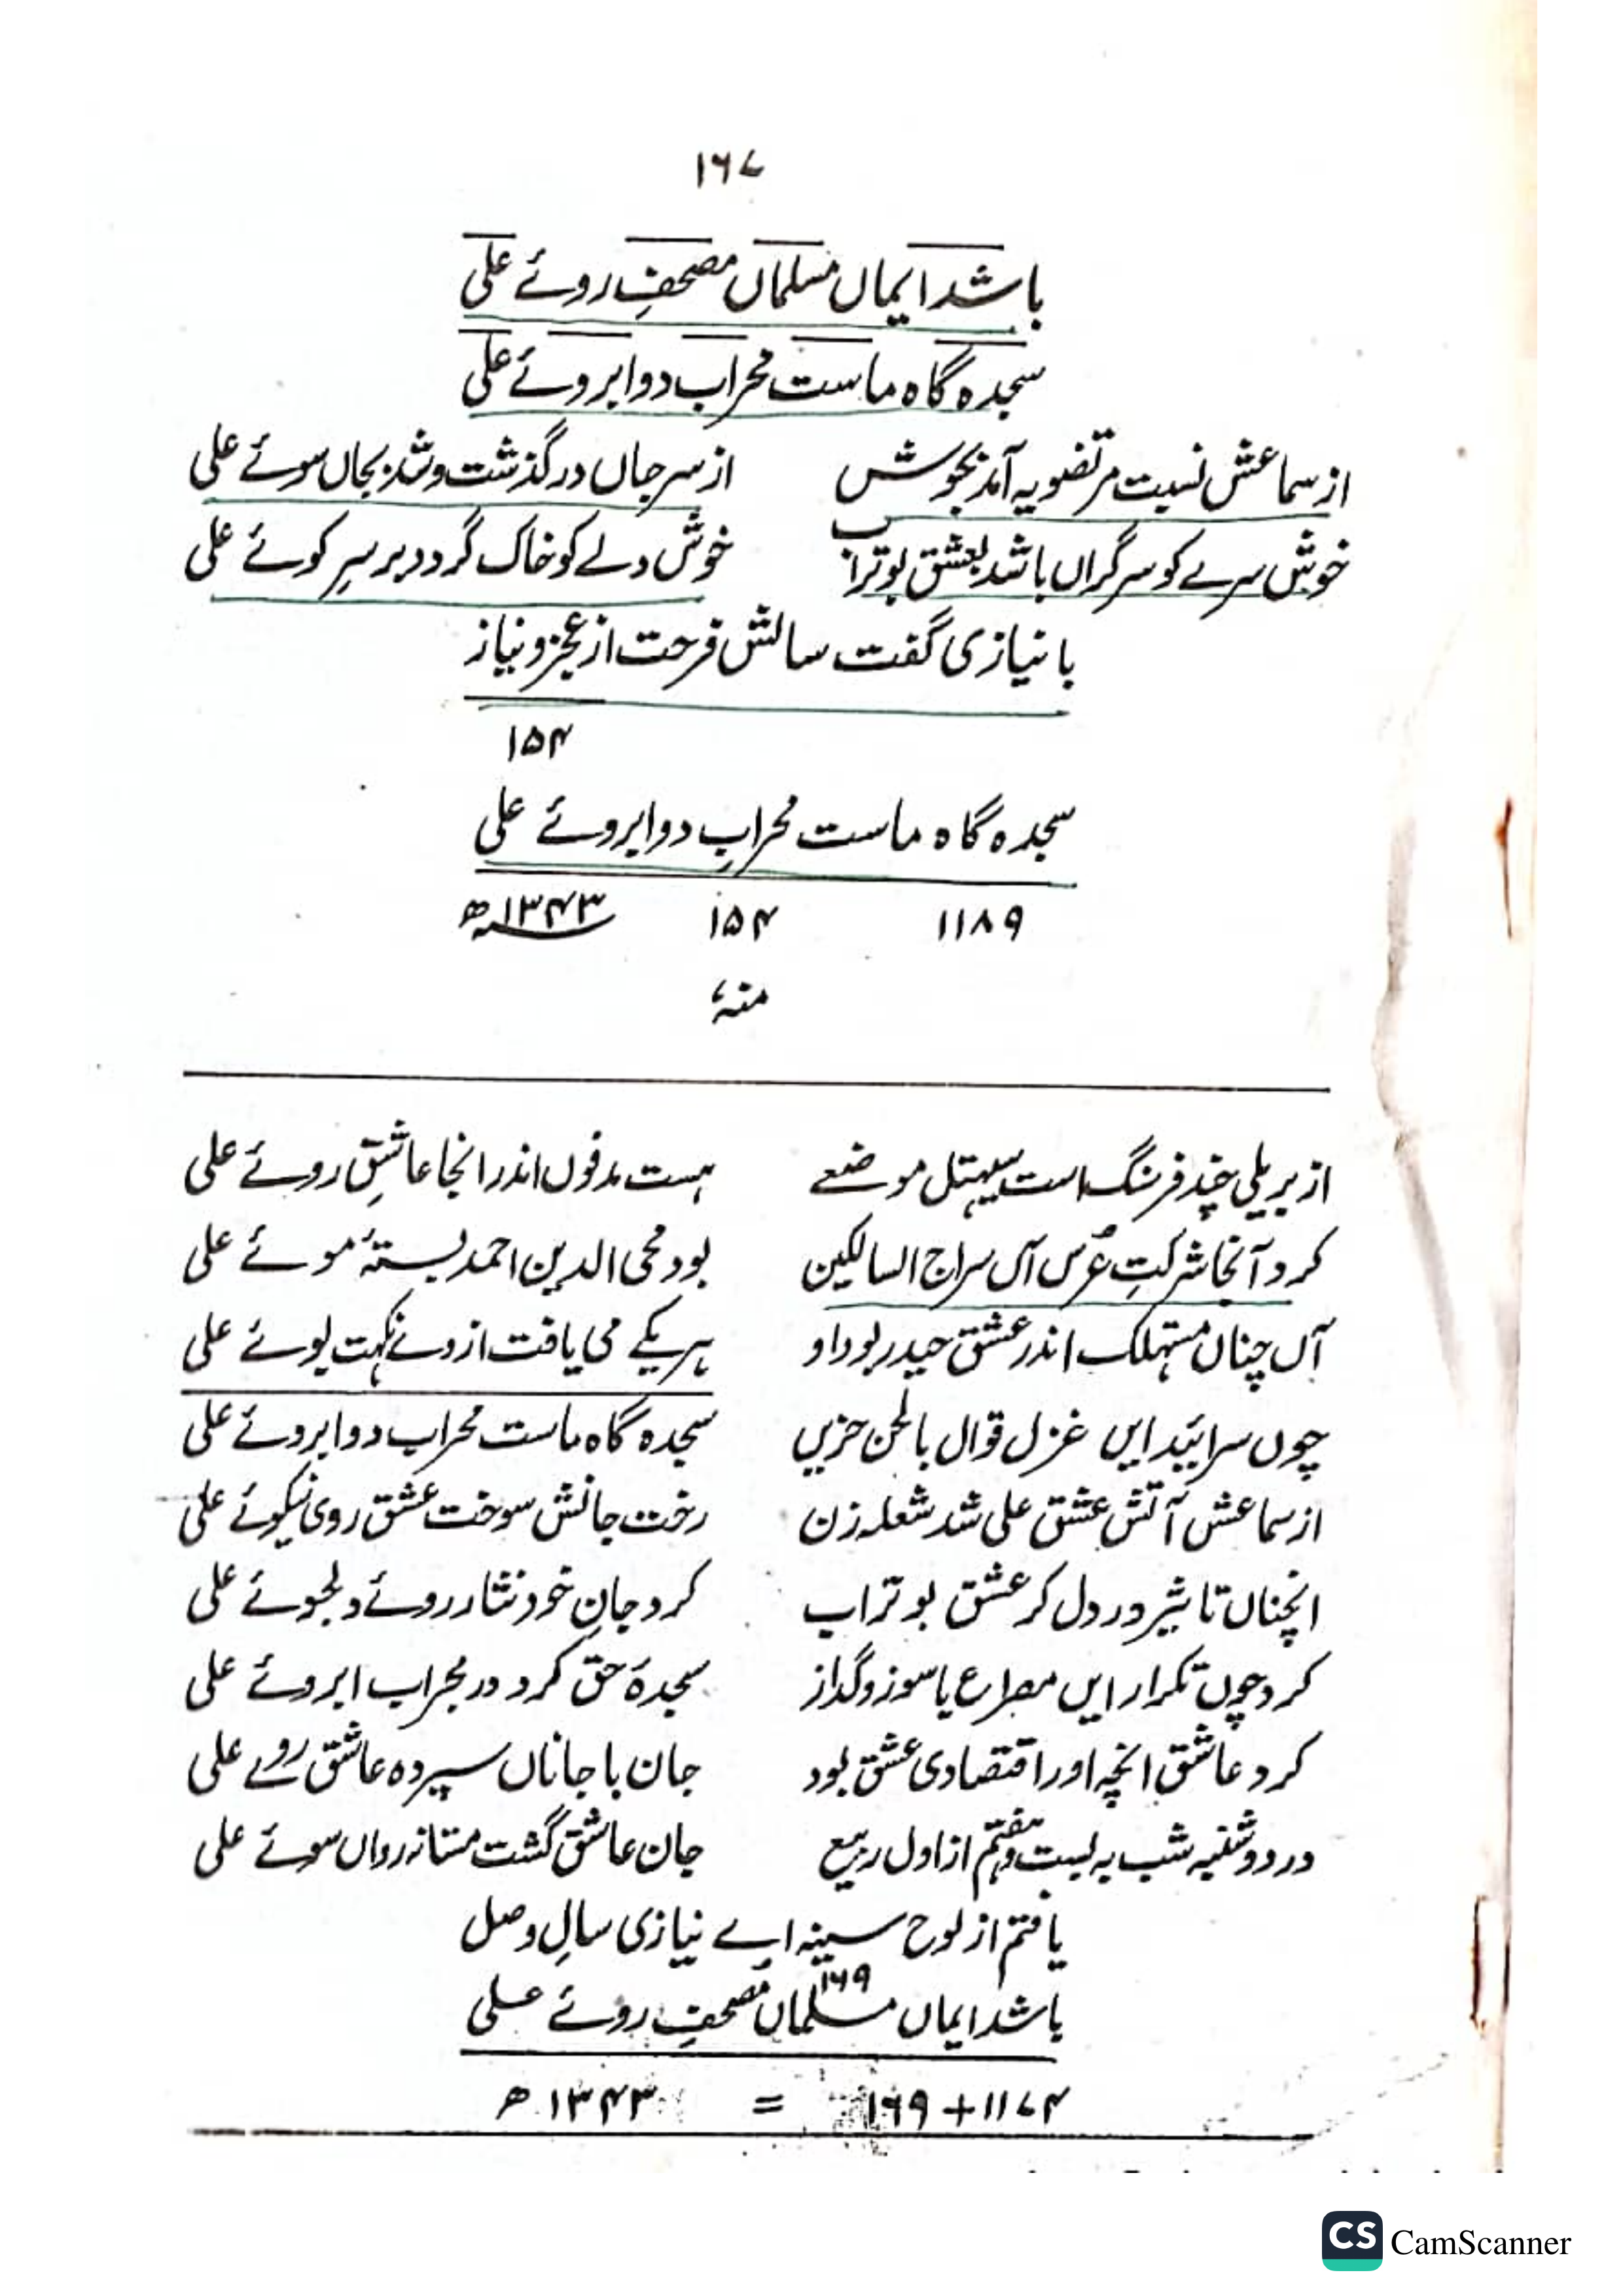 ۱۶۷
باشد ایماں مسلماں مصحفِ روئے علی
سجدہ گاہ ماست محراب دو ابروئے علی
از سماعش نسبت مرتضویہ آمد بجوش از سر جاں در گذشت و شد بجاں سوئے علی
خوش سرے کو سرگراں باشد بعشق بوتراب خوش دلے کو خاک گردد بر سرِ کوئے علی
با نیازی گفت سالش فرحت از عجز و نیاز
۱۵۴
سجدہ گاہ ماست محرابِ دو ابروئے علی
۱۱۸۹ ۱۵۴ ۱۳۴۳ھ
منہٗ
از بریلی چند فرنگ است سیہتل موضعے ہست مدفوں اندر انجا عاشقِ روئے علی
کرد آنجا شرکتِ عُرس آں سراج السالکین بود محی الدین احمد بستۂ موئے علی
آں چناں مستہلک اندر عشق حیدر بود او ہر یکے می یافت ازوے نکہت بوئے علی
چوں سرائید ایں غزل قوال بالحن حزیں سجدہ گاہ ماست محراب دو ابروئے علی
از سماعش آتش عشق علی شد شعلہ زن رخت جانش سوخت عشق روی نیکوئے علی
انچناں تاثیر در دل کر عشق بوتراب کرد جانِ خود نثار روئے دلجوئے علی
کرد چوں تکرار ایں مصراع باسوز و گداز سجدۂ حق کرد در محراب ابروئے علی
کرد عاشق انچہ او را اقتصادی عشق بود جان با جاناں سپردہ عاشق روے علی
در دوشنبہ شب بہ بست و ہفتم از اول ربیع جان عاشق گشت مستانہ رواں سوئے علی
یافتم از لوح سینہ اے نیازی سالِ وصل
۱۶۹
باشد ایماں مسلماں مصحفِ روئے علی
۱۱۷۴ + ۱۶۹ = ۱۳۴۳ھ
CS CamScanner